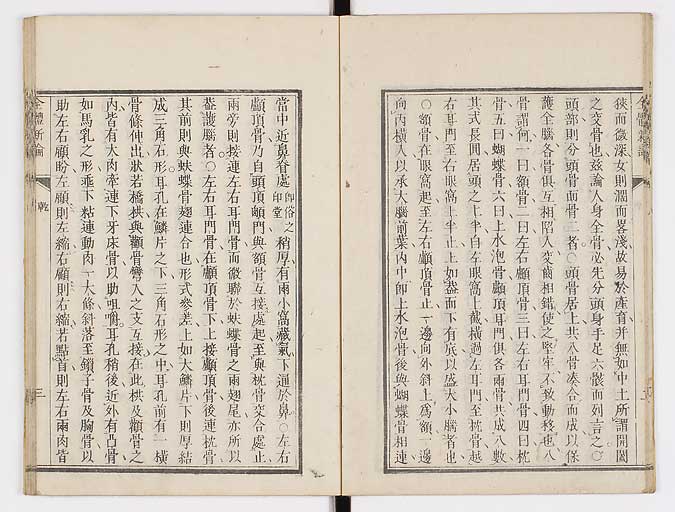 狹而微深女則濶而畧淺故易於產育并無如中土所謂開闔
之交骨也茲論人身全骨必先分頭身手足六骸而列言之○
頭部則分頭骨面骨二者○頭骨居上共八骨凑合而成以保
護全腦各骨俱互相陷入交齒相錯使之堅牢不致動移也八
骨謂何一曰額骨二曰左右顱頂骨三曰左右耳門骨四曰枕
骨五曰蝴蝶骨六曰上水泡骨顱頂耳門俱各兩骨共成八數
其式長圓居頭之上半自左眼窩上截橫過左耳門至枕骨越
右耳門至右眼窩上半止上如蓋而下有底以盛大小腦者也
○額骨在眼窩起至左右顱頂骨止一邊向外斜上爲額一邊
向內橫入以承大腦前葉內中即上水泡骨後與蝴蝶骨相連
全體新論
當中近鼻脊處即俗之印堂稍厚有兩小窩藏氣下通於鼻○左右
顱頂骨乃自頭頂顖門與額骨互接處起至與枕骨交合處止
兩旁則接連左右耳門骨而微聯於蚨蝶骨之兩翅尾亦所以
葢護腦者○左右耳門骨在顱頂骨下上接顱頂骨後連枕骨
其前則與蚨蝶骨翅連合也形式參差上如大鱗片下則厚結
成三角石形耳孔在鱗片之下三角石形之中耳孔前有一橫
骨條伸出狀若橋拱與顴骨彎入之支互接在此拱及顴骨之
內皆有大肉牽連下牙床骨以助咀嚼耳孔稍後近外有凸骨
如馬乳之形垂下粘連動肉一大條斜落至鎖子骨及胸骨以
助左右顧盼左顧則左縮右顧則右縮若點首則左右兩肉皆
全體新論 乾 三